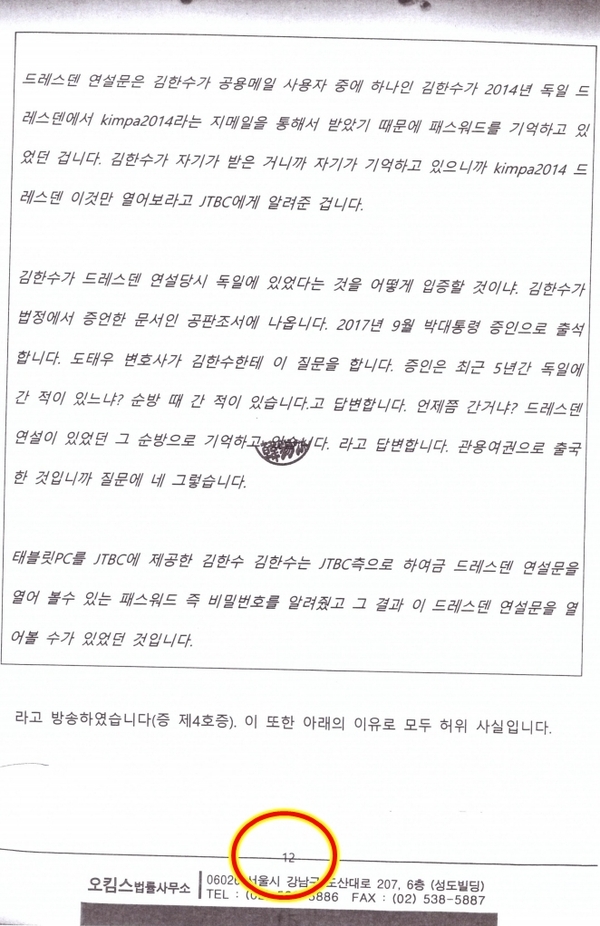 드레스덴 연설문은 김한수가 공용메일 사용자 중에 하나인 김한수가 2014년 독일 드
레스덴에서 kimpa2014라는 지메일을 통해서 받았기 때문에 패스워드를 기억하고 있
었던 겁니다. 김한수가 자기가 받은 거니까 자기가 기억하고 있으니까 kimpa2014 드
레스덴 이것만 열어보라고 JTBC에게 알려준 겁니다.
김한수가 드레스덴 연설당시 독일에 있었다는 것을 어떻게 입증할 것이냐. 김한수가
법정에서 증언한 문서인 공판조서에 나옵니다. 2017년 9월 박대통령 증인으로 출석
합니다. 도태우 변호사가 김한수한테 이 질문을 합니다. 증인은 최근 5년간 독일에
간 적이 있느냐? 순방 때 간 적이 있습니다.고 답변합니다. 언제쯤 간거냐? 드레스덴
연설이 있었던 그 순방으로 기억하고 라고 답변합니다. 관용여권으로 출국
한 것입니까 질문에 네 그렇습니다.
태블릿PC를 JTBC에 제공한 김한수 김한수는 JTBC측으로 하여금 드레스덴 연설문을
열어 볼수 있는 패스워드 즉 비밀번호를 알려줬고 그 결과 이 드레스덴 연설문을 열
어볼 수가 있었던 것입니다.
라고 방송하였습니다(증 제4호증). 이 또한 아래의 이유로 모두 허위 사실입니다.
12
오킴스법률사무소
서울시 강남구 도산대로 207, 6층 (성도빌딩)
TEL : (02) 5886 FAX : (02) 538-5887